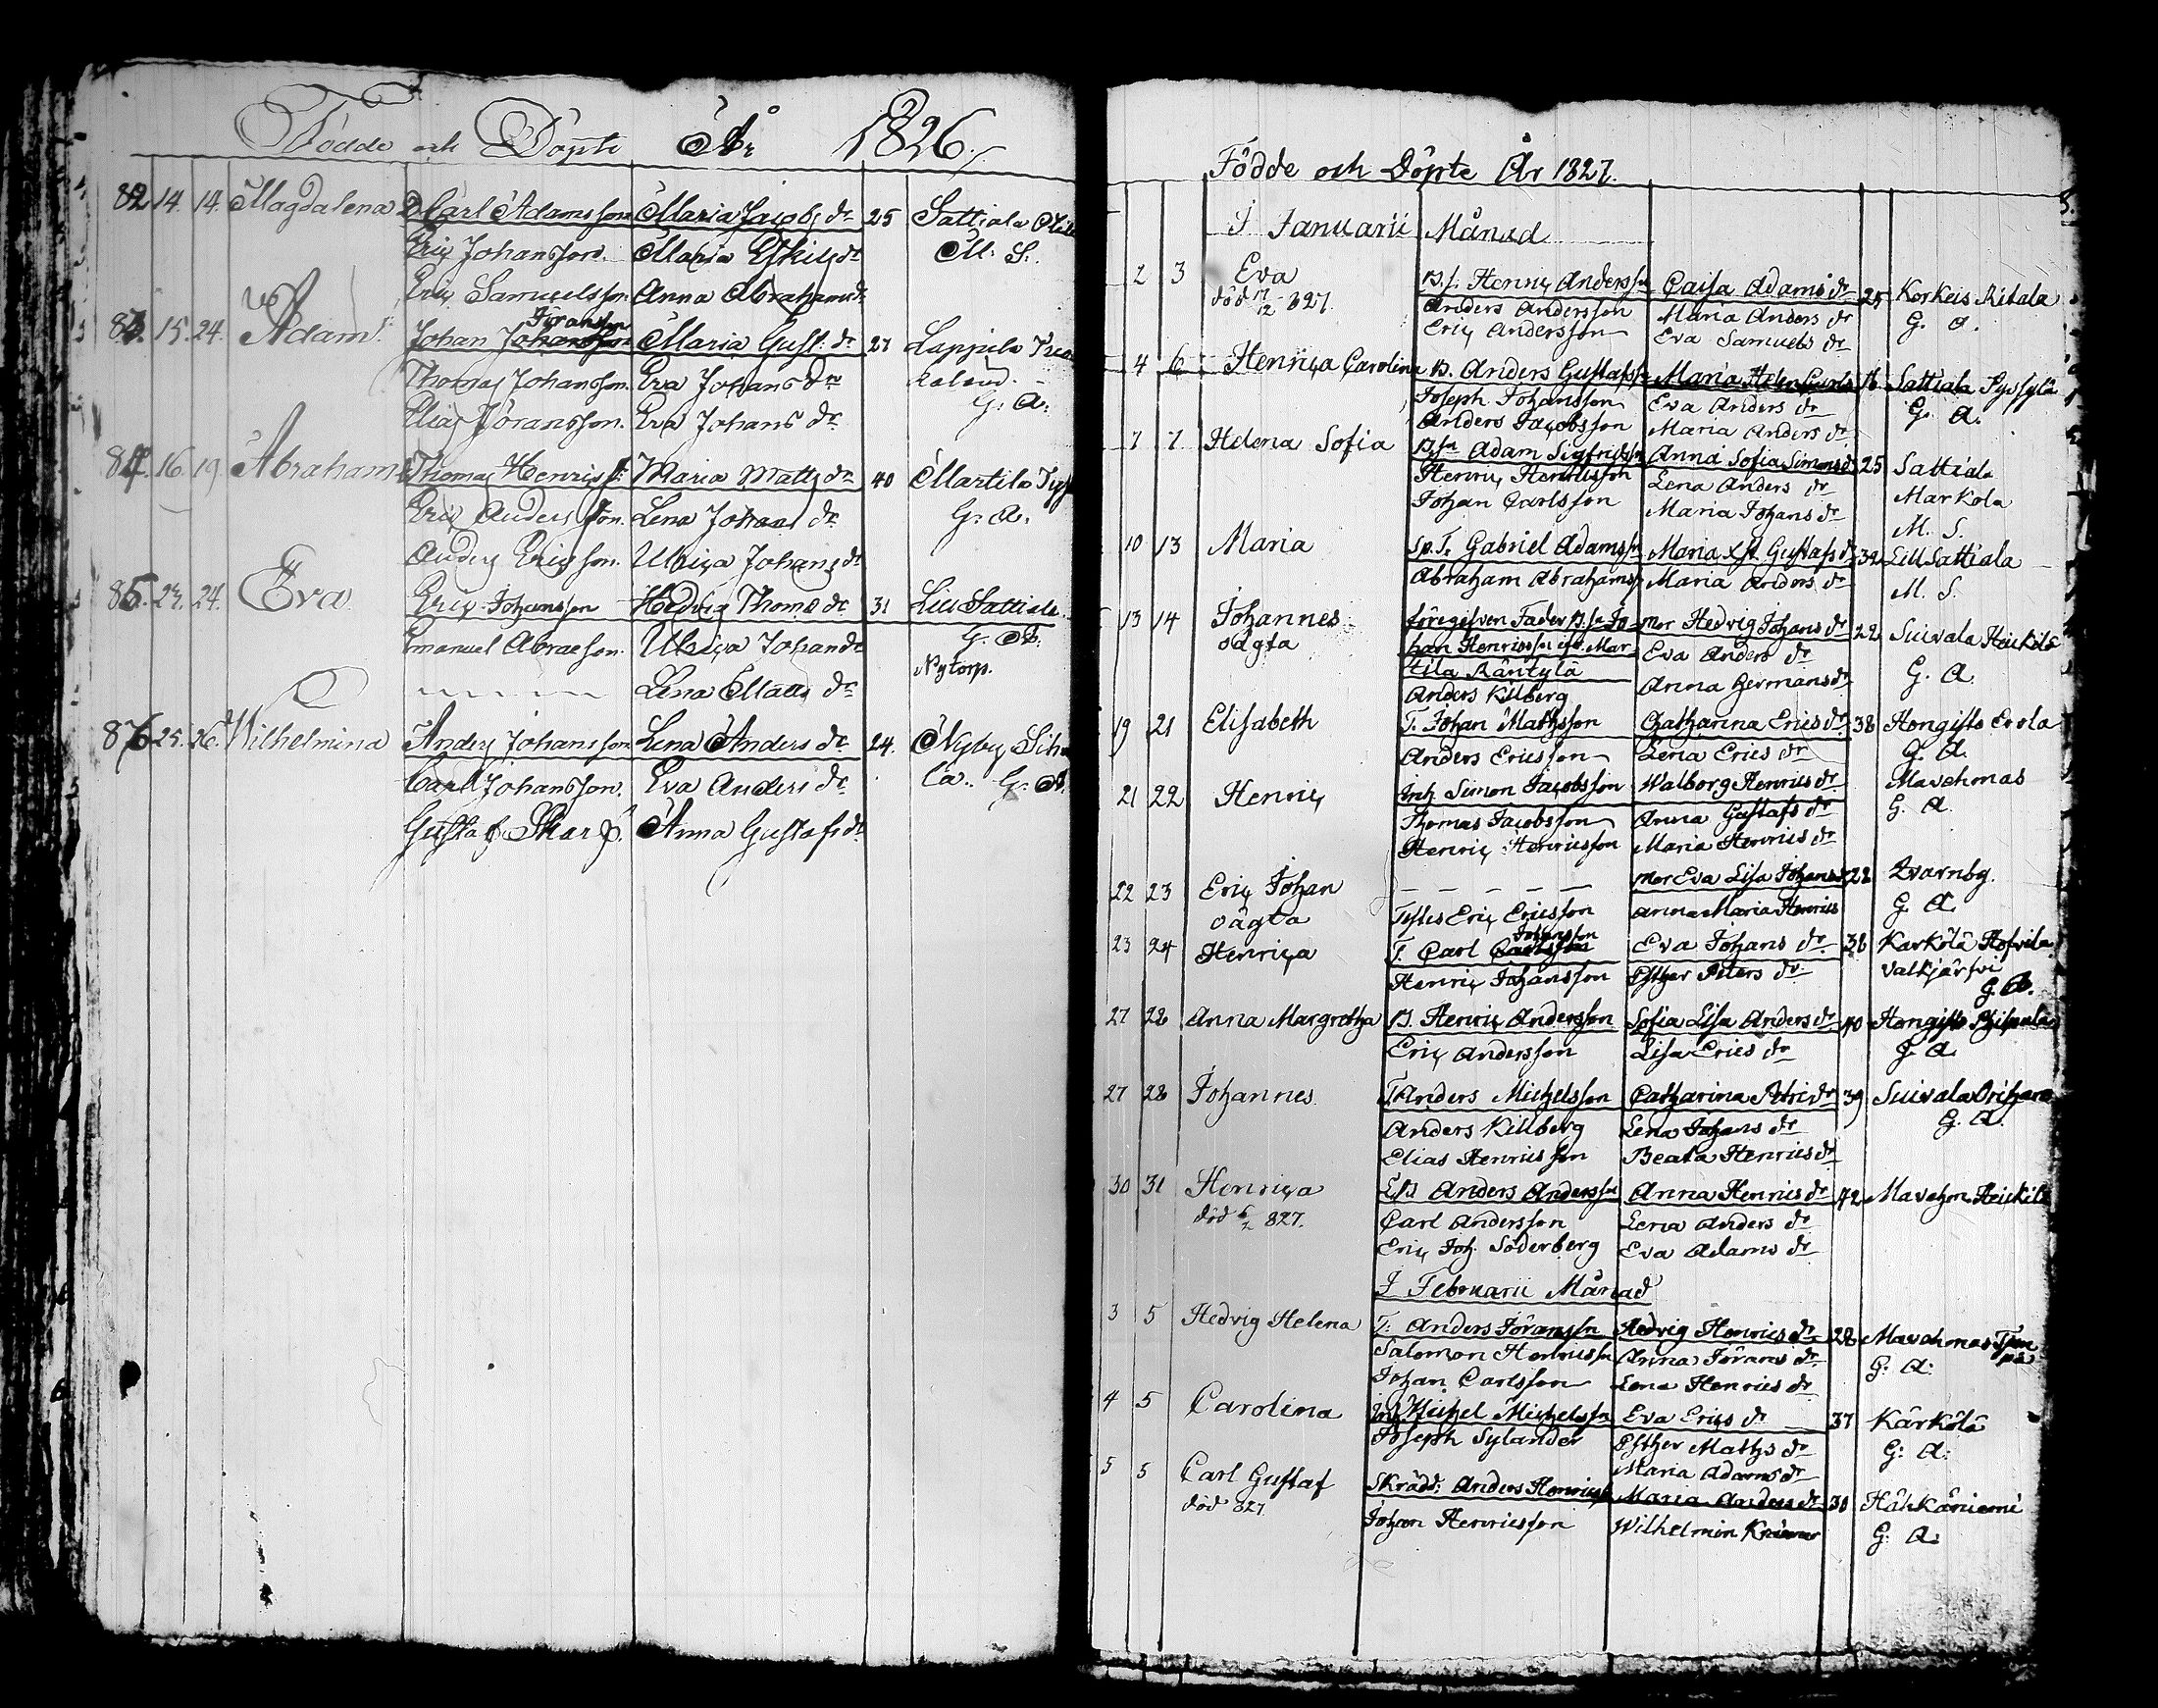 Födde och Döpte År 1826.
82 14. 14. Magdalena D. Carl Adamsson Maria Jacobs dr 25 Sattiala
Eric Johansson. Maria Eskils dr M. S.
Eric Samuelsson Anna Abrahams dr
83. 15. 24. Adam Johan Johansson Jöransson Maria Gust. dr 27 Lappila
Thomas Johansson. Eva Johans dr
G. A.
Elias Jöransson. Eva Johans dr
84. 16. 19. Abraham Thomas Henricss: Maria Matts dr 40 Martila
Eric Andersson. Lena Johans dr G. A.
Anders Ericsson. Ulrica Johans dr
85. 23. 24. Eva Eric Johansson Hedvig Thoms dr 31 Lill Sattiala
Emanuel Abraesson. Ulrica Johans dr G. A.
Nytorp.
Lena Matts dr
86 25. 26. Wilhelmina Anders Johansson Lena Anders dr 24. Nyby
Carl Johansson. Eva Anders dr la. G. A.
Gustaf Skarp. Anna Gustafs dr
Födde och Döpte År 1827.
I Januarii Månad
2 3 Eva B.s. Henric Anderssn Caisa Adams dr 25 Korkeis Ritala
död 17/12 827. Anders Andersson Maria Anders dr G. A.
Eric Andersson Eva Samuels dr
4 6 Henrica Carolina B. Anders Gustafssn Maria Helen 16 Sattiala
Joseph Johansson Eva Anders dr G. A.
Anders Jacobsson Maria Anders dr
7 7 Helena Sofia B.sn Adam Sigfridssn Anna Sofia Simons dr 25 Sattiala
Henric Henricsson Lena Anders dr Markola
Johan Carlsson Maria Johans dr M. S.
10 13 Maria Sp.T. Gabriel Adamssn Maria Gustafs dr 32 Lill Sattiala
Abraham Abrahamss Maria Anders dr M. S.
13 14 Johannes föregifven Fader B.sn Jo- Mor Hedvig Johans dr 22 Suivala Heickilä
oägta han Henricssn ifr. Mar- Eva Anders dr
tila Räntylä Anna Hermans dr G. A.
Anders Killberg
19 21 Elisabeth T. Johan Mathsson Catharina Erics dr 38 Hongisto Erola
Anders Ericsson Lena Erics dr G. A.
21 22 Henric Inh. Simon Jacobsson Walborg Henrics dr Mavehmas
Thomas Jacobsson Anna Gustafs dr G. A.
Henric Henricsson Maria Henrics dr
22 23 Eric Johan — — — — — Mor Eva Lisa Johans 22 Kvarnbg.
oägta Eric Ericsson Anna Maria Henrics G. A.
23 24 Henrica T. Carl Carlsson Johansson Eva Johans dr 38 Karkölä Hofvila
Henric Johansson Esther Peters dr valkjärfvi
G. A.
27 28 Anna Margretha B. Henric Andersson Sofia Lisa Anders dr 40 Hongisto
Eric Andersson Lisa Erics dr G. A.
27 28 Johannes T. Anders Michelsson Catharina Petri dr 39 Suivala
Anders Killberg Lena Johans dr G. A.
Elias Henricsson Beata Henrics dr
30 31 Henrica Anders Anderssn Anna Henrics dr 42 Mavehm Heickilä
död 6/2 827. Carl Andersson Lena Anders dr
Eric Joh. Söderberg Eva Adams dr
I Februarii Månad
3 5 Hedvig Helena T. Anders Jöranssn Hedvig Henrics dr 28 Mavehmas
Salomon Henricssn Anna Jörans dr G. A.
Johan Carlsson Lena Henrics dr
4 5 Carolina Inh Michel Michelssn Eva Erics dr 37 Kärkölä
Joseph Sylander Esther Maths dr G. A.
Maria Adams dr
5 5 Carl Gustaf Skrädd. Anders Henricss Maria Anders dr 30 Hähkäniemi
död 827 Johan Henricsson Wilhelmin G. A.